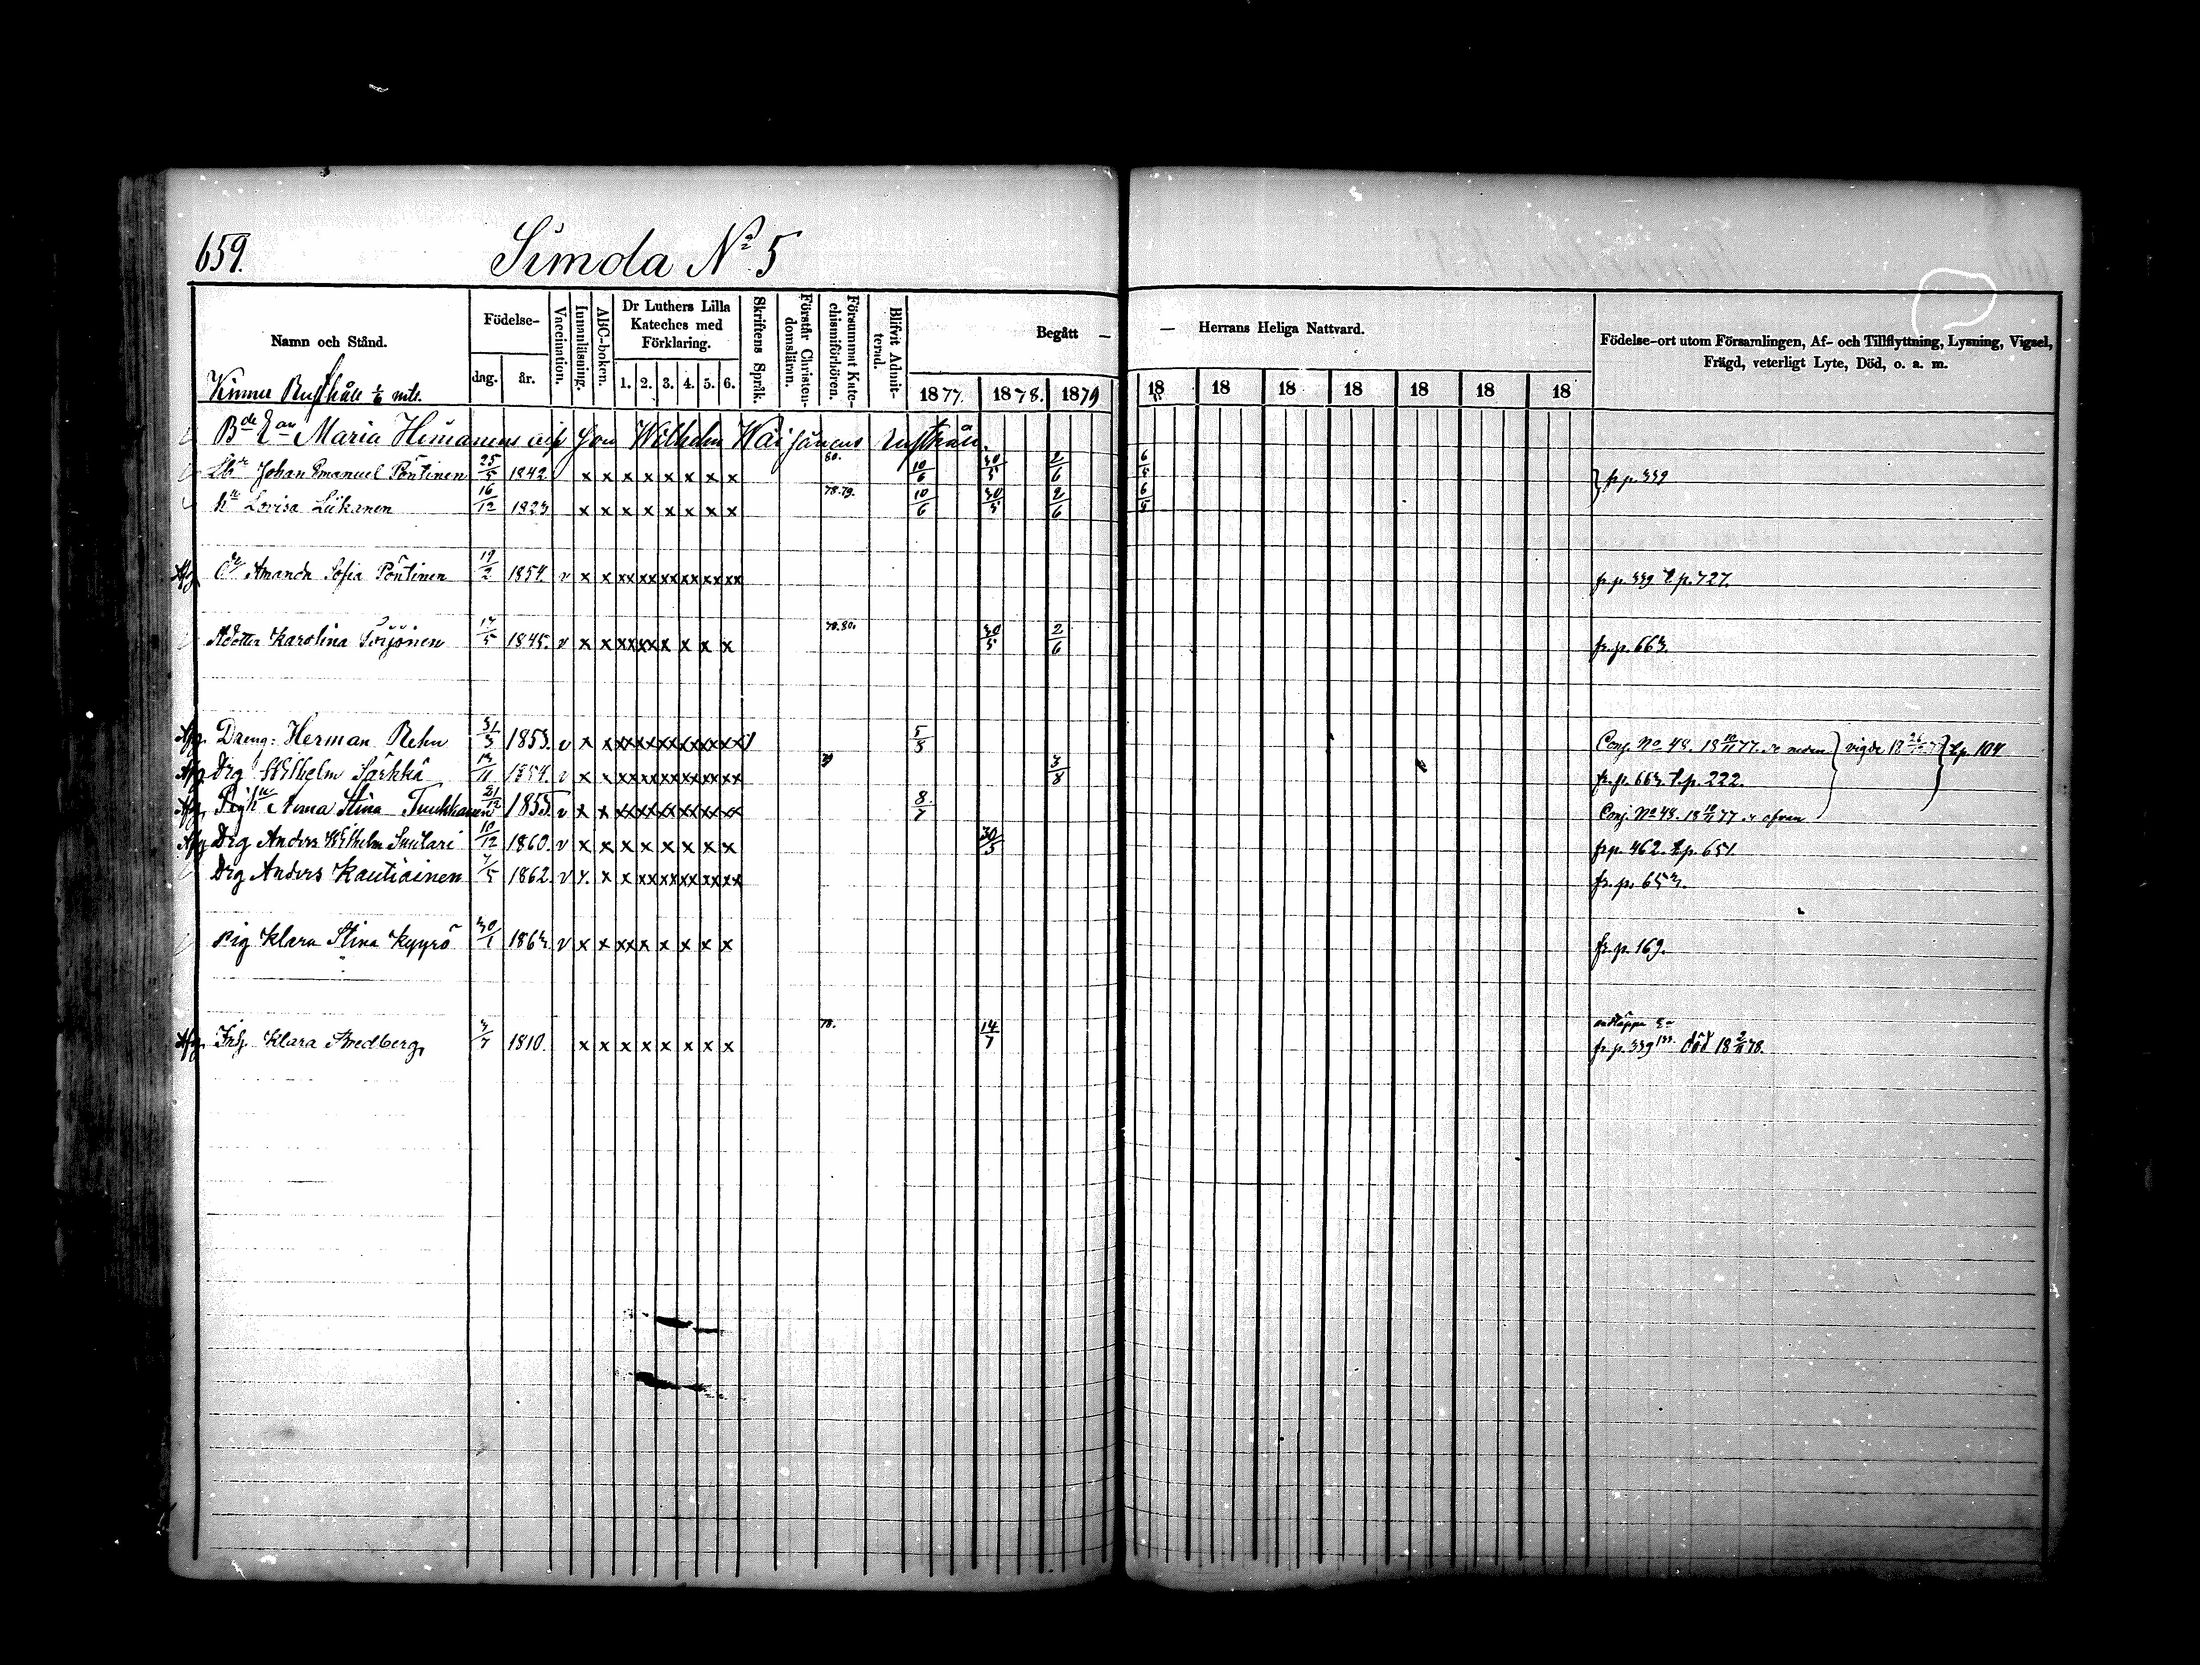 659.
Simola No 5
Namn och Stånd.
Födelse-
dag.
år.
Vaccination.
Innanläsning.
ABC-boken.
Dr Luthers Lilla
Kateches med
Förklaring.
1. 2. 3. 4. 5. 6.
Skriftens Språk.
Förstår Christen-
domsläran.
Försummat Kate-
chismiförhören.
Blifvit Admit-
terad.
Begått — — Herrans Heliga Nattvard.
1877. 1878. 1879 18 18 18 18 18 18 18
Födelse-ort utom Församlingen, Af- och Tillflyttning, Lysning, Vigsel,
Frägd, veterligt Lyte, Död, o. a. m.
Rusthåll mtl.
Maria Wilhelm
Johan Emanuel Pöntinen 25/5 1842. x x x x x x x x 80. 10/6 30/5 2/6 6/5 fr p. 339
Lovisa Liikanen 16/12 1823 x x x x x x x x 78.79. 10/6 30/5 2/6 6/5
Afg Amanda Sofia Pöntinen 19/2 1854. v x x xx xx xx xx xx xx fr p. 339 t. p. 727.
Karolina 17/5 1845. v x x xx xx x x x x 78.80. 30/5 2/6 fr. p. 663.
Afg. Dreng. Herman Rehn 31/3 1853. v x x xx xx xx xx xx xx 5/8 Conj. No 48. 18 77. vigde t. p. 104
Afg Drg Wilhelm Särkkä 1854. v x x xx xx xx xx xx xx 79 3/8 fr. p. 663. t. p. 222.
Afg. Anna Stina 31/12 1855. v x x xx xx xx xx xx xx 8/7 Conj. No 48. 18 77. ofvan
Afg Drg Anders Wilhelm 10/12 1860. v x x x x x x x x 30/5 fr p. 462. t. p. 651.
Drg Anders Kautiainen 7/5 1862. v x. x x xx xx xx xx xx fr. p. 653.
Pig Klara Stina Kyyrö 30/1 1863. v x x xx x x x x x fr. p. 169.
Afg. Klara 3/7 1810. x x x x x x x x 78. 14/7 fr. p. 339 död 18 78.